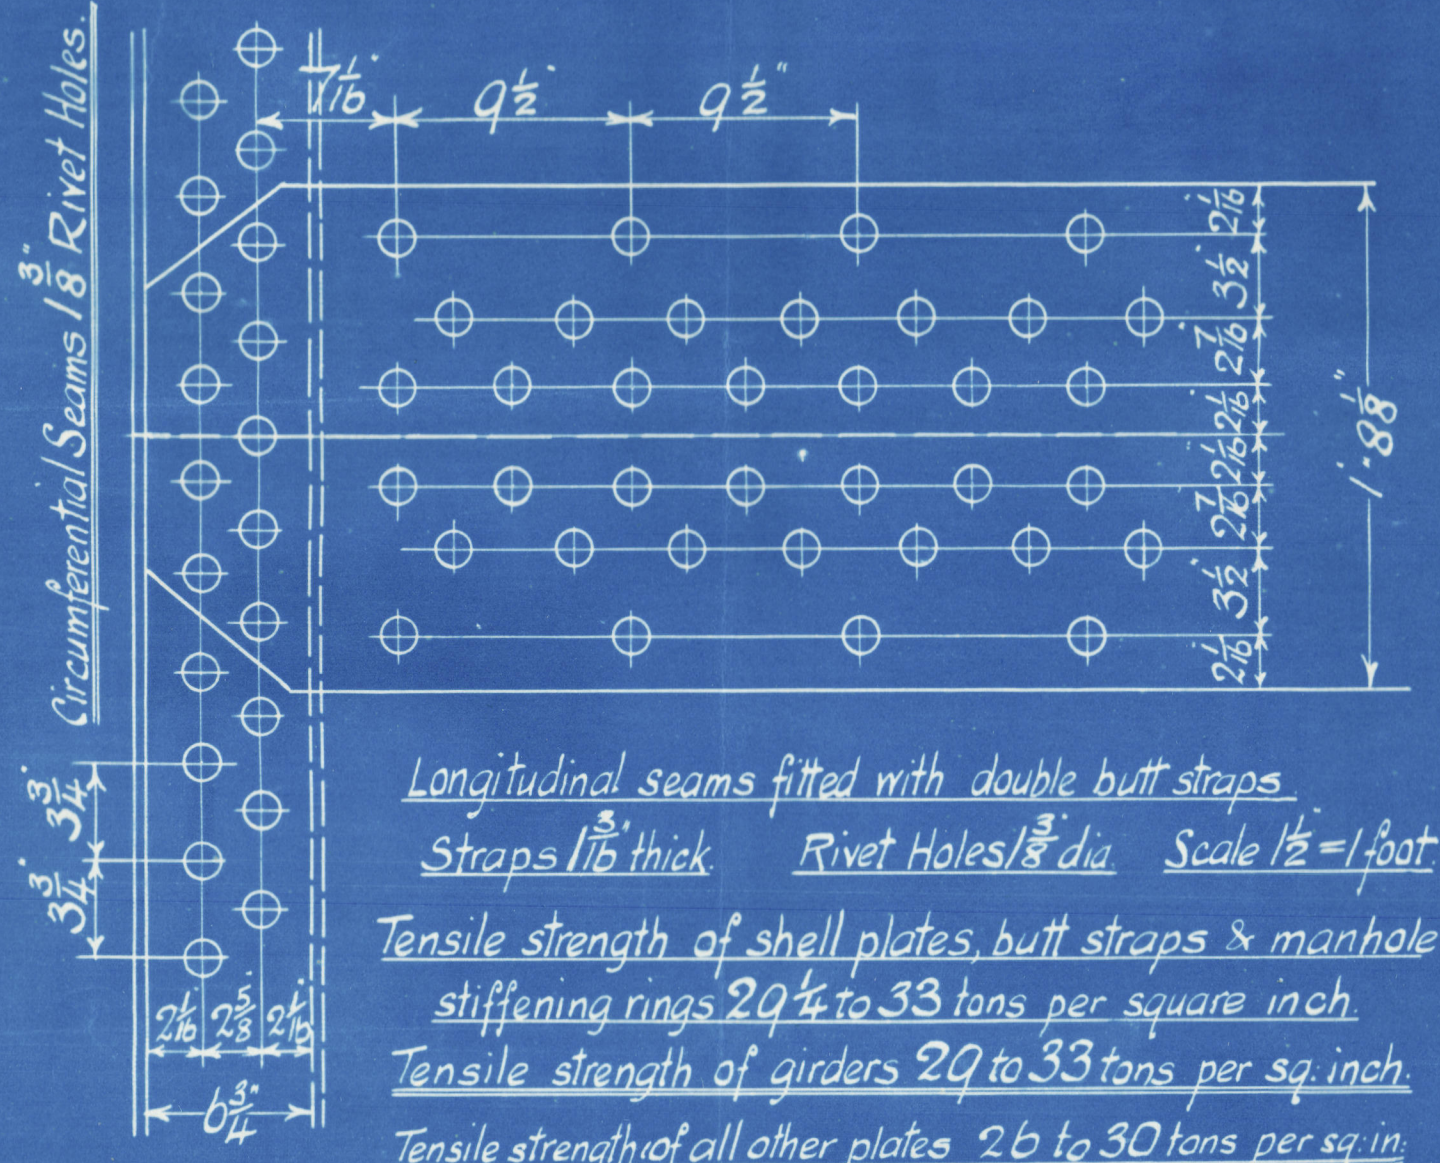 Circumferential Seams 1 3/8" Rivet Holes.
7 1/16" 9 1/2" 9 1/2"
2 1/16"
3 1/2"
2 7/16"
2 1/16"
2 1/16"
2 7/16"
3 1/2"
2 1/16"
1'-8 1/8"
3 3/4"
3 3/4"
2 1/16" 2 5/8" 2 1/16"
6 3/4"
Longitudinal seams fitted with double butt straps
Straps 1 3/16" thick. Rivet Holes 1 3/8" dia. Scale 1 1/2" = 1 foot.
Tensile strength of shell plates, butt straps & manhole
stiffening rings 29 1/4 to 33 tons per square inch.
Tensile strength of girders 29 to 33 tons per sq: inch.
Tensile strength of all other plates 26 to 30 tons per sq: in: